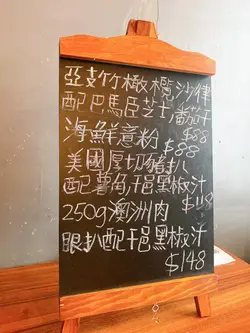 亞支竹橄欖沙律
配巴馬臣芝士番茄干
$88
海鮮意粉
$88
美國厚切豬扒
配薯角干邑黑椒汁
$118
250g澳洲肉
眼扒配干邑黑椒汁
$148